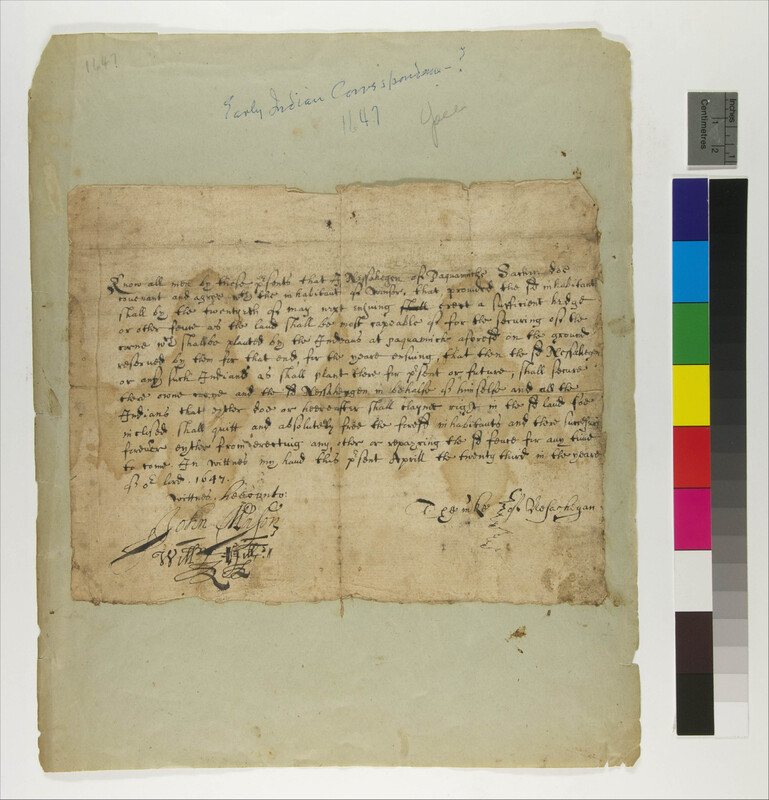 1647
Early Indian Correspondence-?
1647
Know all men by these p̃sents that I Nassahegen of Paquanicke Sachim doe
covenant and agree wth the inhabitants of Winsor, that provided the sd inhabitants
shall by the twentyth of may next insuing shall erect a sufficient hedge
or other fence as the land shall be most capeable of for the securing of the
corne wch shalbe planted by the Indeans at paquanicke aforesd on the ground
reserved by them for that end, for the yeare ensuing, that then the sd Nassahegen
or any such Indians as shall plant there for p̃sent or future, shall secure
there owne corne and the sd Nassahegen in behalfe of himselfe and all the
Indeans that eyther doe or hereafter shall clayme right in the sd land soe
inclosed shall quitt and absolutely free the foresd inhabitants and there successors
forever eyther from erecting any other or repayring the sd fence for any time
to come. In wittnes my hand this p̃sent Aprill the twenty third in the yeare
of or lord. 1647.
wittnes hereunto:
John Mason
The mke of Nasachegan
Will